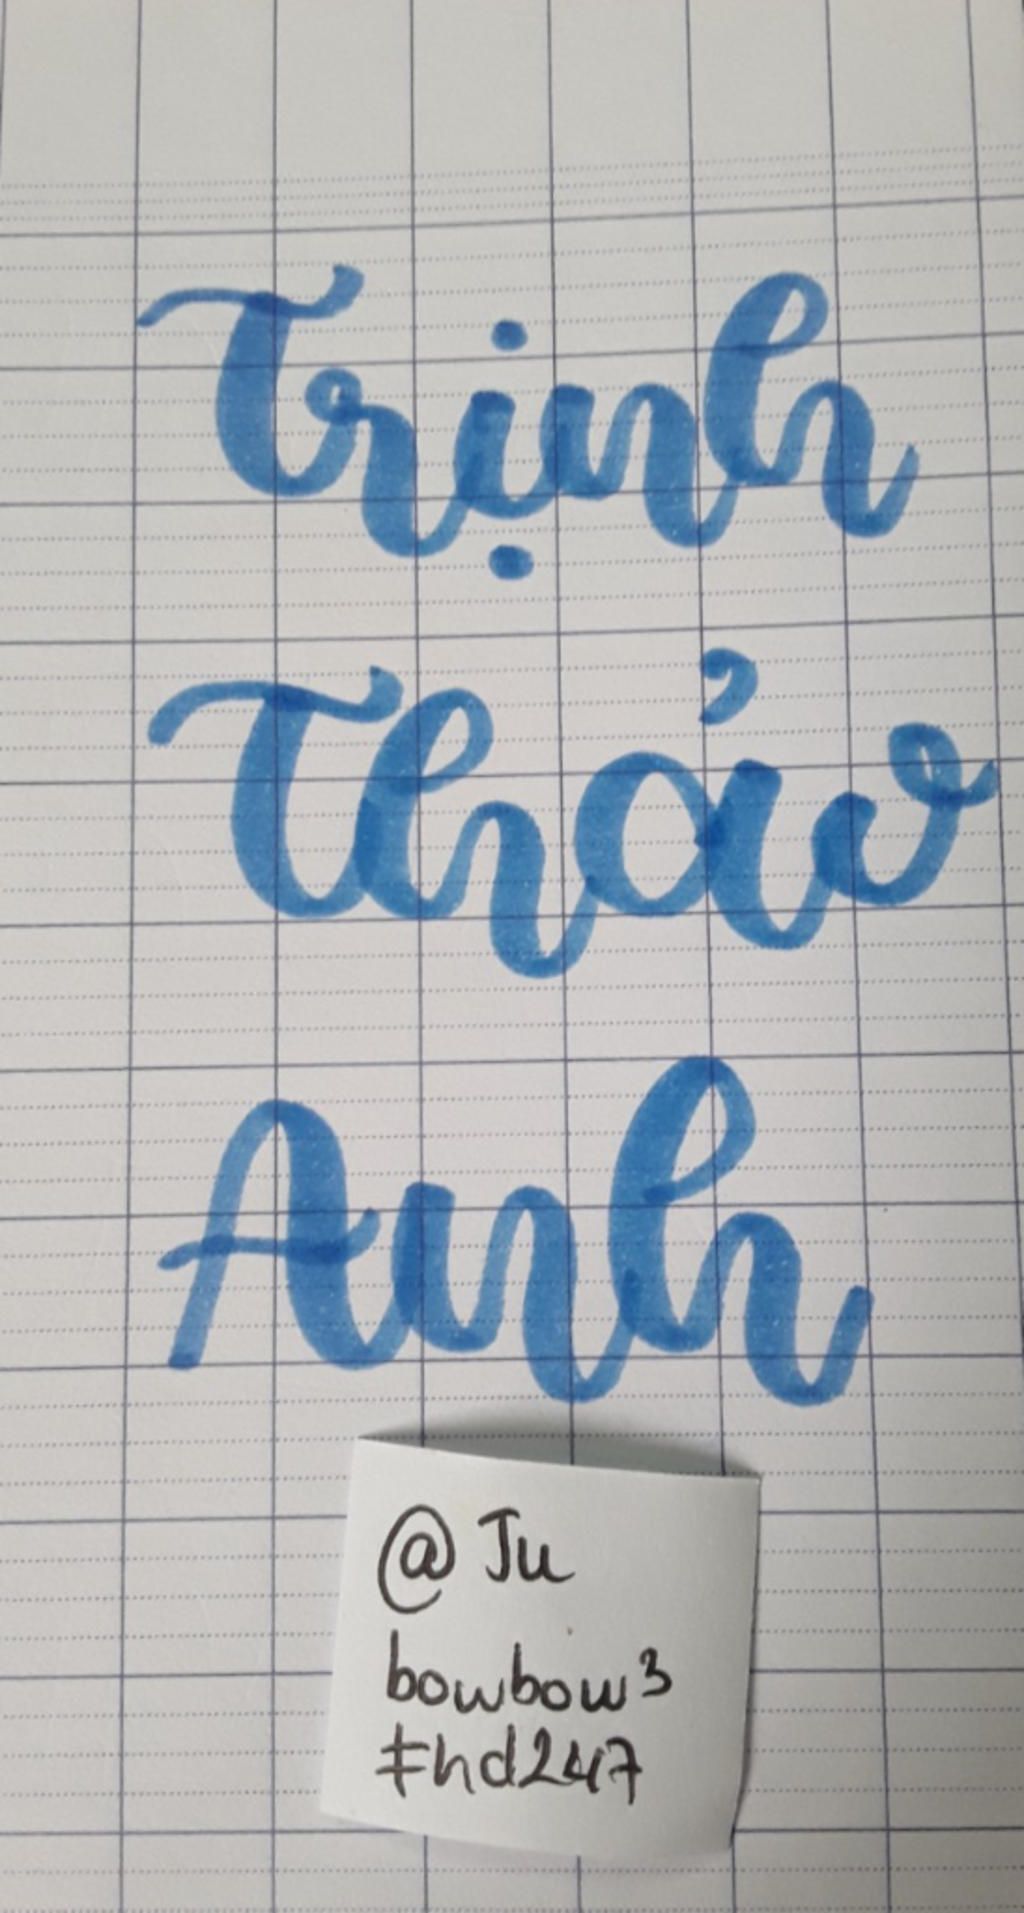 Trịnh
Thảo
Anh
@Ju
bowbow3
#hd247